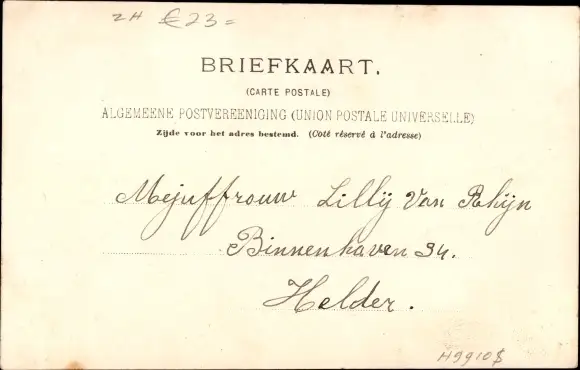 ZH €23=
BRIEFKAART.
(CARTE POSTALE)
ALGEMEENE POSTVEREENIGING (UNION POSTALE UNIVERSELLE)
Zijde voor het adres bestemd. (Coté réservé à l'adresse)
Mejuffrouw Lilly Van Rhijn
Binnenhaven 94.
Helder.
H9910$